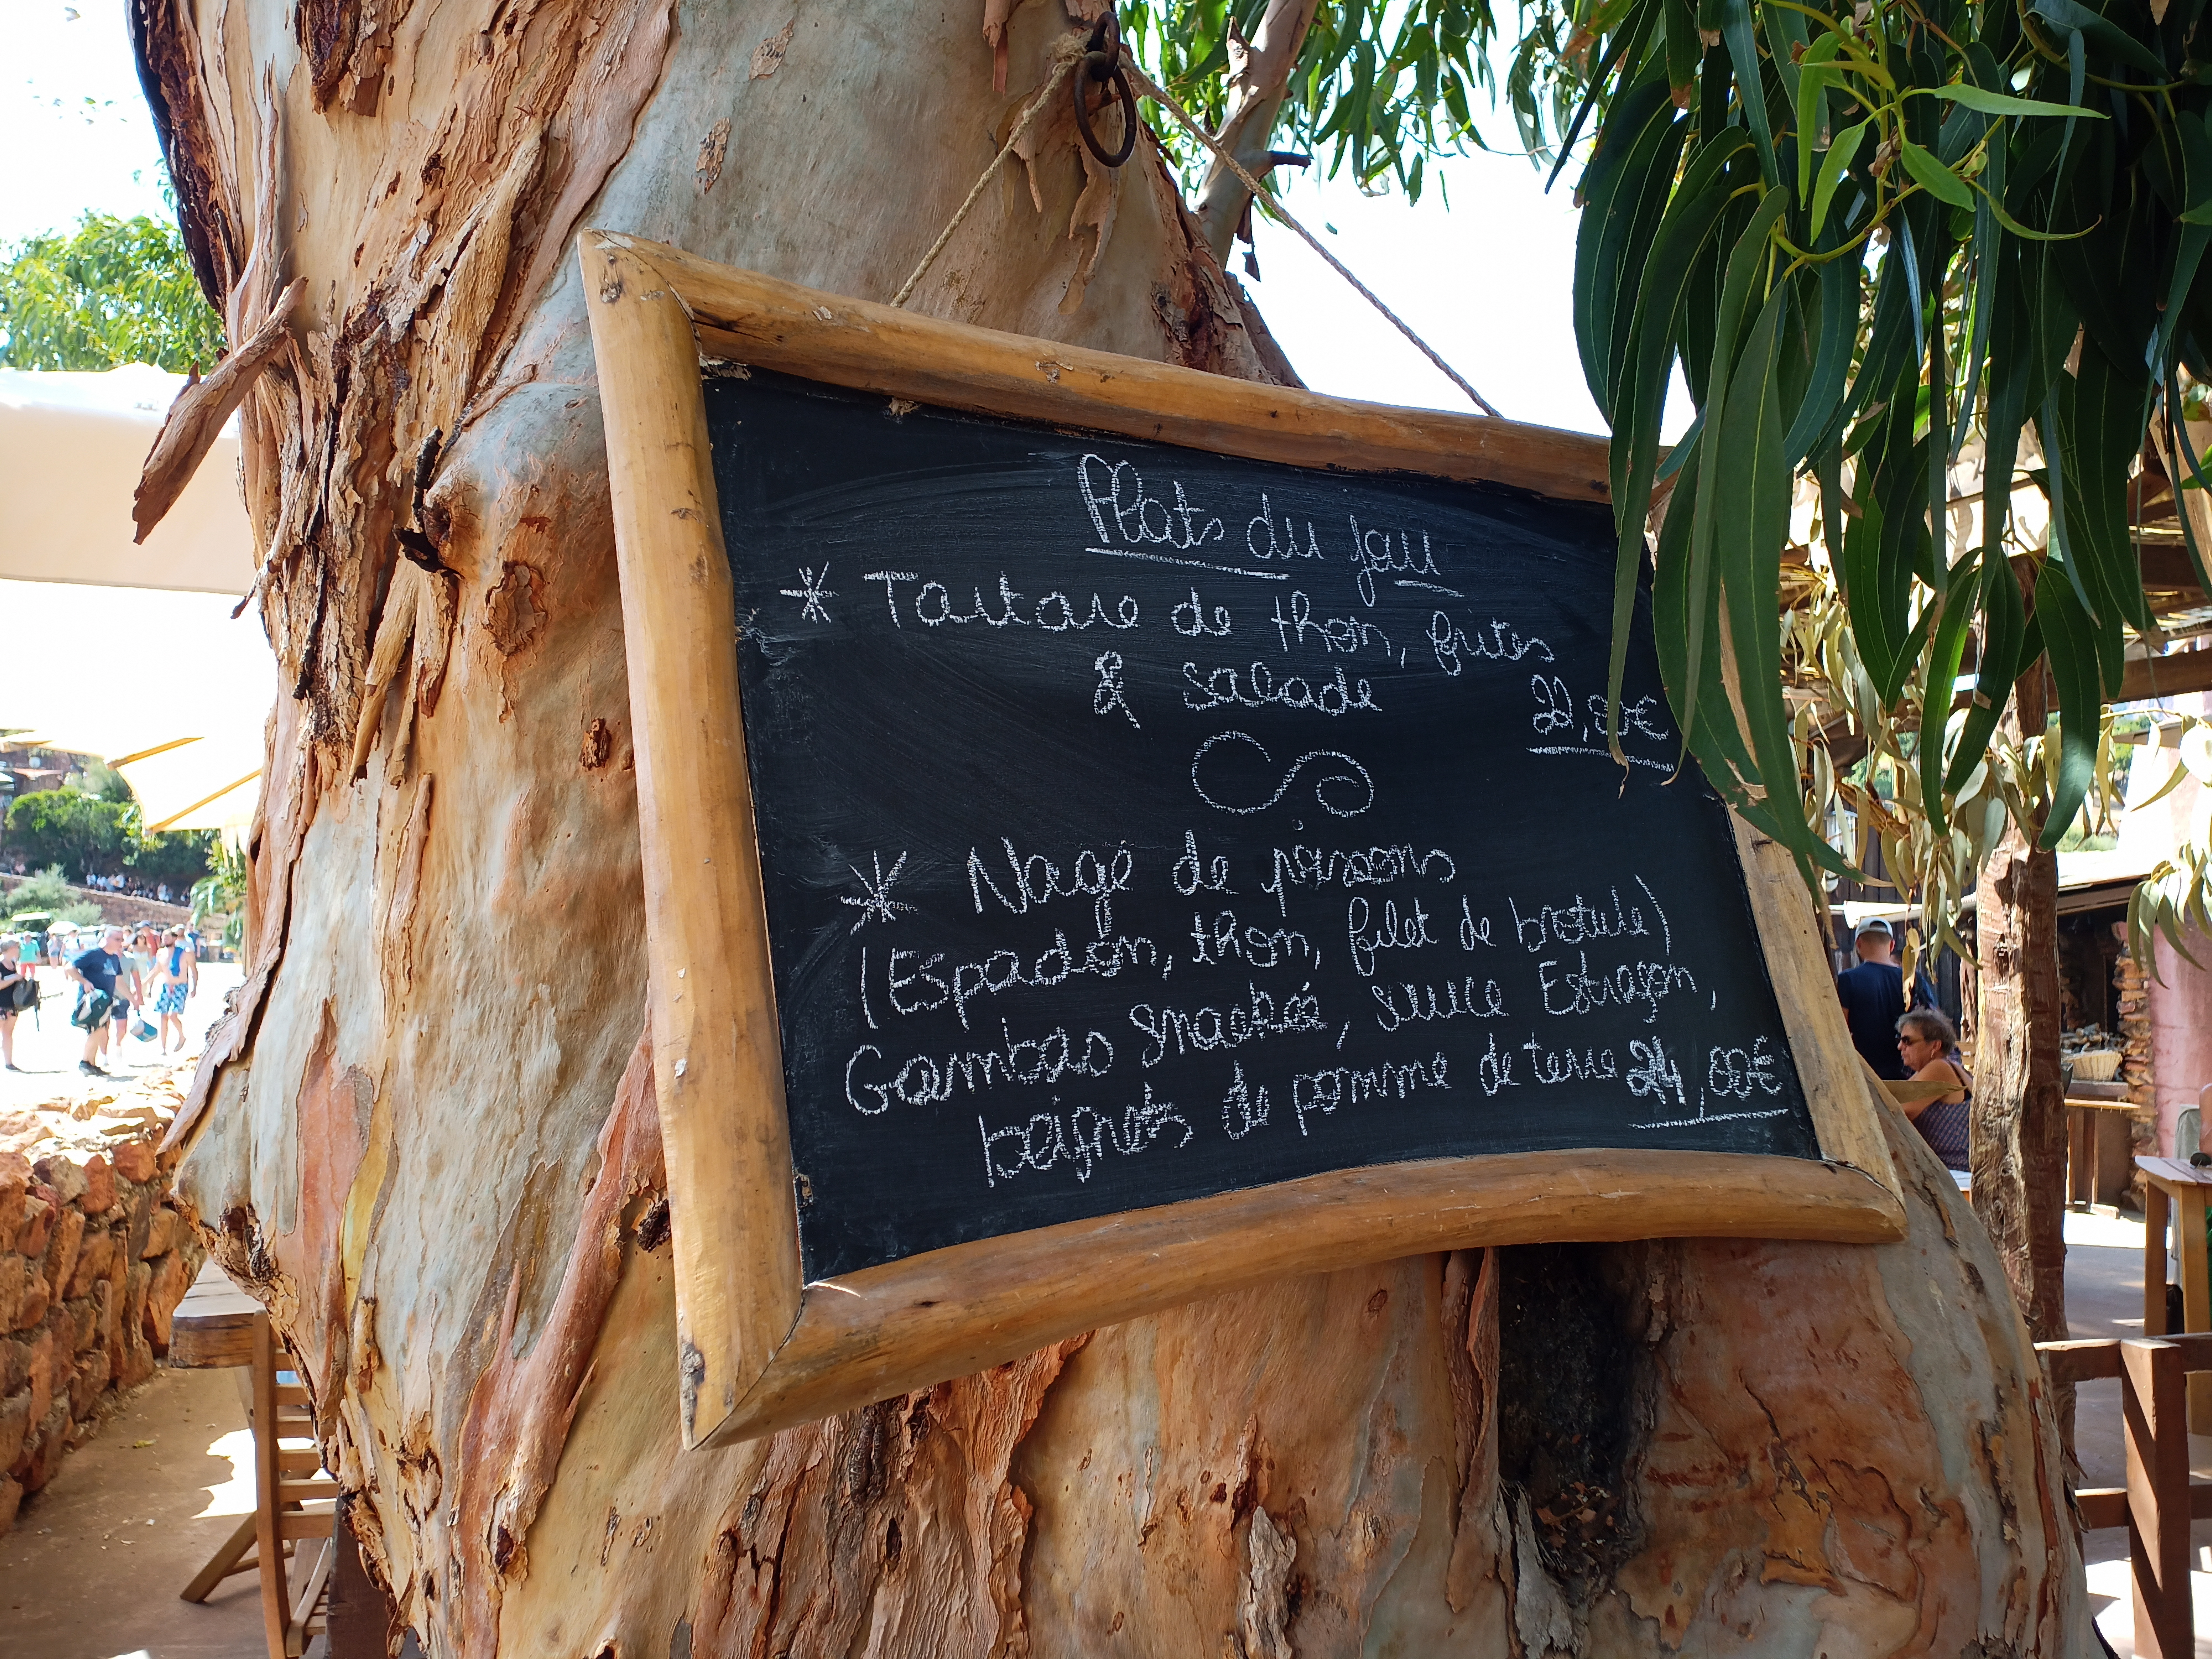 Plats du jour
* Tartare de thon, frites
& salade 22,00€
* Nage de poissons
(Espadon, thon, filet de brotule)
Gambas snackée, sauce Estragon,
beignets de pomme de terre 24,00€